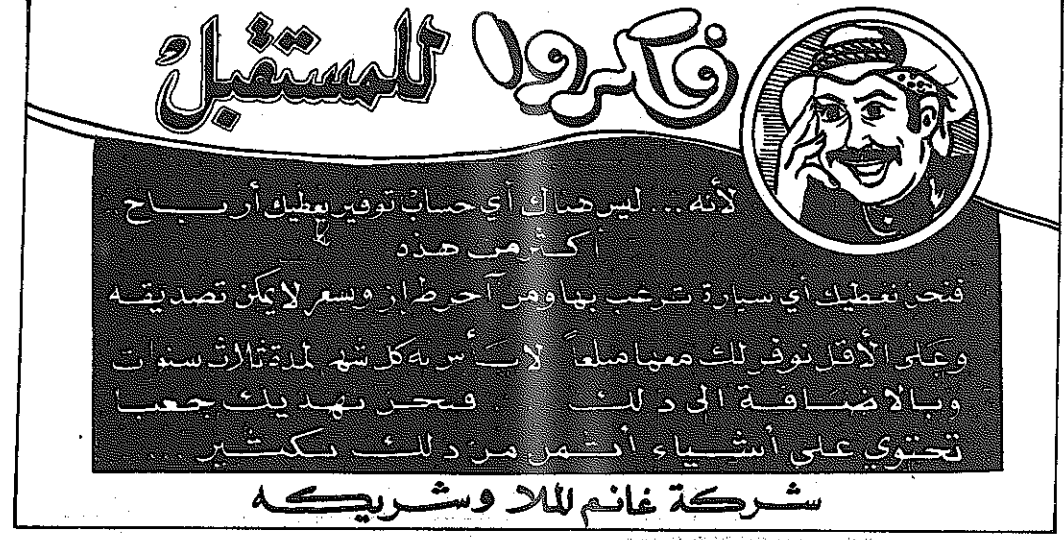 فكروا للمستقبل
لأنه... ليس هناك أي حساب توفير يعطيك أربـــاح..
أكثر من هذه
فنحن نعطيك أي سيارة ترغب بها ومن آخر طراز وسعر لا يمكن تصديقه
وعلى الأقل نوفر لك معها مبلغاً لا بأس به كل شهر لمدة ثلاث سنوات
وبالاضافة الى ذلك ... فنحن نهديك جعبا
تحتوي على أشياء أثمر من ذلك بكثير...
شركة غانم الملا وشريكه